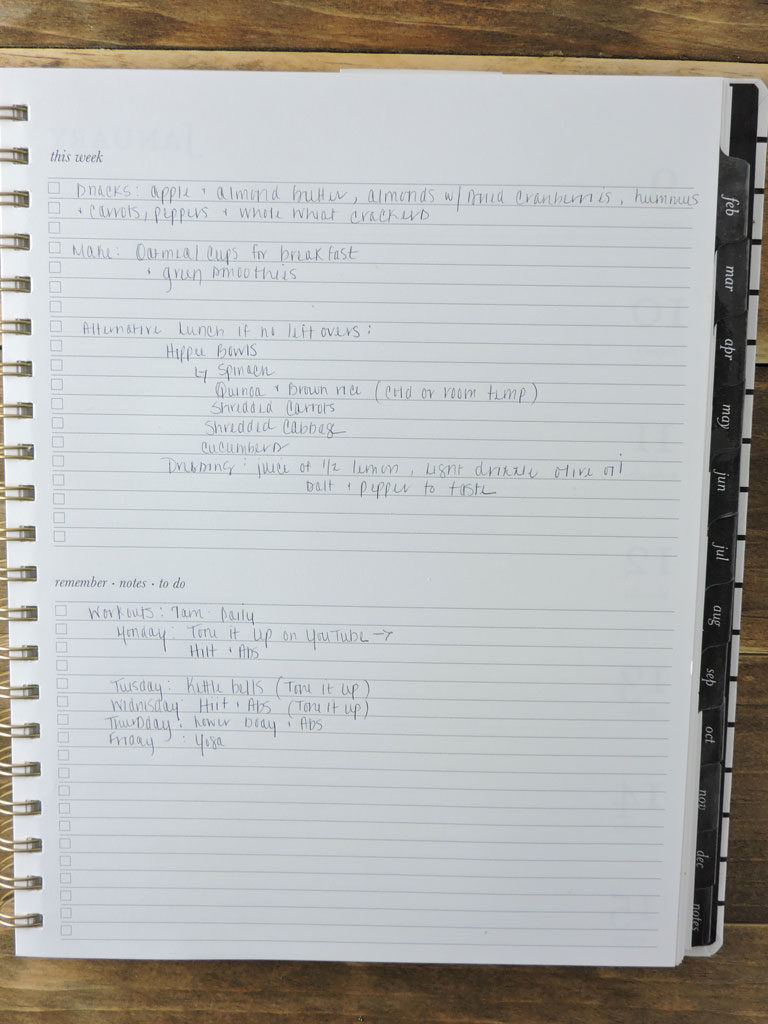 this week
Snacks: apple + almond butter, almonds w/ dried cranberries, hummus
+ carrots, peppers + whole wheat crackers
Make: Oatmeal cups for breakfast
+ green smoothies
Alternative Lunch if no leftovers:
Hippie Bowls
↳ Spinach
Quinoa + Brown rice (cold or room temp)
Shredded Carrots
Shredded Cabbage
cucumbers
Dressing: juice of 1/2 lemon, light drizzle olive oil
Salt + pepper to taste
remember · notes · to do
Workouts: 7am Daily
Monday: Tone it up on YouTube →
Hiit + Abs
Tuesday: Kettle bells (Tone it up)
Wednesday: Hiit + Abs (Tone it up)
Thursday: Lower Body + Abs
Friday : Yoga
feb
mar
apr
may
jun
jul
aug
sep
oct
nov
dec
notes